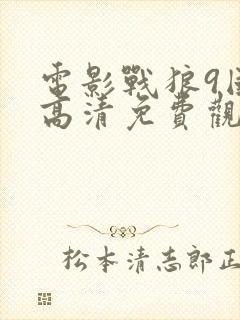 電影戰狼9國
高清免費觀
松本清志郎正